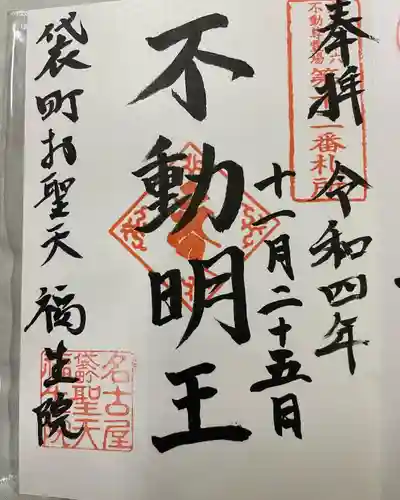 奉拝 令和四年
十一月二十五日
不動明王
袋町お聖天 福生院
番札所
名古屋
袋町聖天
福生院